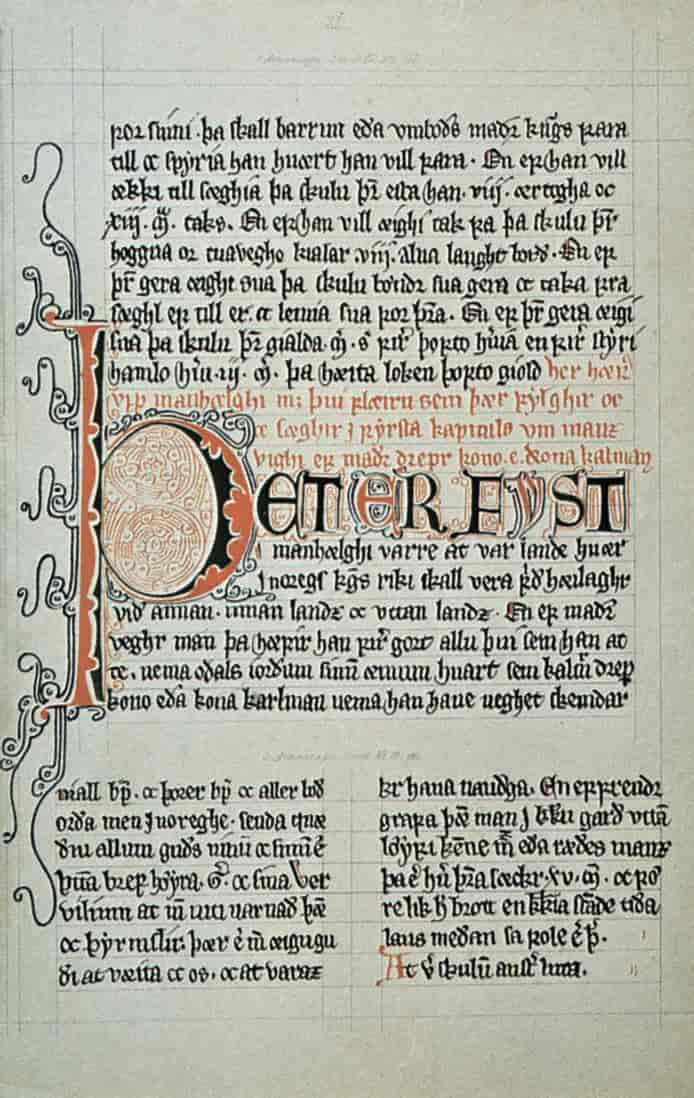 ꝼoꝛ suini. þa skall barrunt eða vmbods madꝛ kngs ꝼara
till oc spyria han huært han vill ꝼara. En eꝼ han vill
ækki till sæghia þa skulu þr æsta han. viij. œrtogha oc
xiij. mꝛ. taks. En eꝼ han vill æighi tak ꝼa þa skulu þr
hoggua oꝛ tuavegho kialar .viij. alna langht boꝛd. En eꝼ
þr gera æight sua þa skulu bondꝛ sua gera oc taka ꝼra
sæghl eꝼ till er. oc leiuia sua ꝼoꝛ þꝛa. En eꝼ þr gera æigi
sua þa skulu þr gialda. mꝛ. s ꝼir þopto huia en ꝼir styri
hamlo huu .ij. mꝛ. þa hæita loken þopto giold her hæꝼr
vpp manhælghi m; þui ꝼlæiru sem þær ꝼylghir oc
æ sæghir j ꝼyrsta kapitulo vm manz
vighi eꝼ madꝛ dꝛepꝛ kono. e. kona kalman
ÞET ER FYST
j manhælghi varre at var lande huær
j noꝛegs kgs riki skall vera ꝼd hæilaghr
vid annan. innan landz oc vttan landz. En eꝼ madꝛ
veghr man þa hæꝼir han ꝼir goꝛt allu þui sem han at
te. nema odals ioꝛdum sinu æinum huart sem kalm dꝛep
kono eða kona karlman nema han haue ueghet skemdar
mall bp. oc þoꝛer bp oc aller lod
oꝛda men j noreghe. senda quæ
dm allum guds uinu oc sinu e
þma bꝛeꝼ høyra. G. oc sina ver
vilium at m uiti uarnad þæ
oc þyrmslir. þær e m æigugu
di at væita oc os. oc at varaz
kr hana naudga. En eꝼ ꝼrendꝛ
grapa þæ man j kku gard vtta
løyꝼi kenne m eda rades manz
þa e hu þꝛa sæckr .xv. mꝛ. oc ꝼø
re lik h bꝛott en kkia stade tida
laus medan sa ꝼole e þ.
At v skulu aust luta.